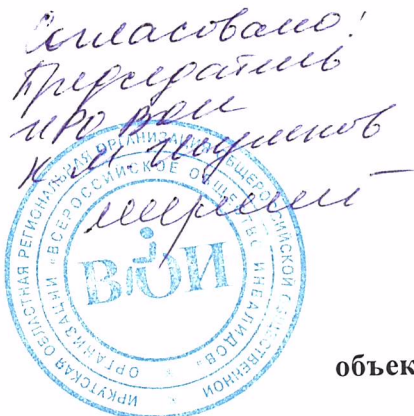 Согласовано!
Председатель
ИРО ВОИ
ИРКУТСКАЯ ОБЛАСТНАЯ РЕГИОНАЛЬНАЯ ОРГАНИЗАЦИЯ ОБЩЕРОССИЙСКОЙ ОБЩЕСТВЕННОЙ
ОРГАНИЗАЦИИ «ВСЕРОССИЙСКОЕ ОБЩЕСТВО ИНВАЛИДОВ»
ВОИ
объек